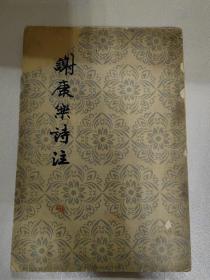 謝康樂詩注